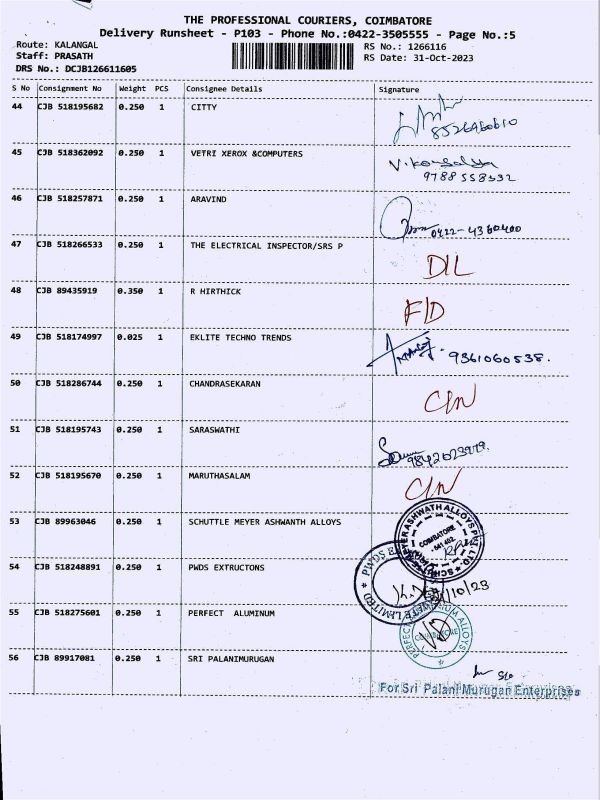 THE PROFESSIONAL COURIERS, COIMBATORE
Delivery Runsheet - P103 - Phone No.:0422-3505555 - Page No.:5
Route: KALANGAL RS No.: 1266116
Staff: PRASATH RS Date: 31-Oct-2023
DRS No.: DCJB126611605
S No Consignment No Weight PCS Consignee Details Signature
44 CJB 518195682 0.250 1 CITTY
45 CJB 518362092 0.250 1 VETRI XEROX &COMPUTERS
9788558332
46 CJB 518257871 0.250 1 ARAVIND
0422-4360400
47 CJB 518266533 0.250 1 THE ELECTRICAL INSPECTOR/SRS P
D/L
48 CJB 89435919 0.350 1 R HIRTHICK
F/D
49 CJB 518174997 0.025 1 EKLITE TECHNO TRENDS
9361060538.
50 CJB 518286744 0.250 1 CHANDRASEKARAN
C/N
51 CJB 518195743 0.250 1 SARASWATHI
52 CJB 518195670 0.250 1 MARUTHASALAM
C/N
53 CJB 89963046 0.250 1 SCHUTTLE MEYER ASHWANTH ALLOYS
COIMBATORE
54 CJB 518248891 0.250 1 PWDS EXTRUCTONS
/10/23
55 CJB 518275601 0.250 1 PERFECT ALUMINUM
56 CJB 89917081 0.250 1 SRI PALANIMURUGAN
For Sri Palani Murugan Enterprises